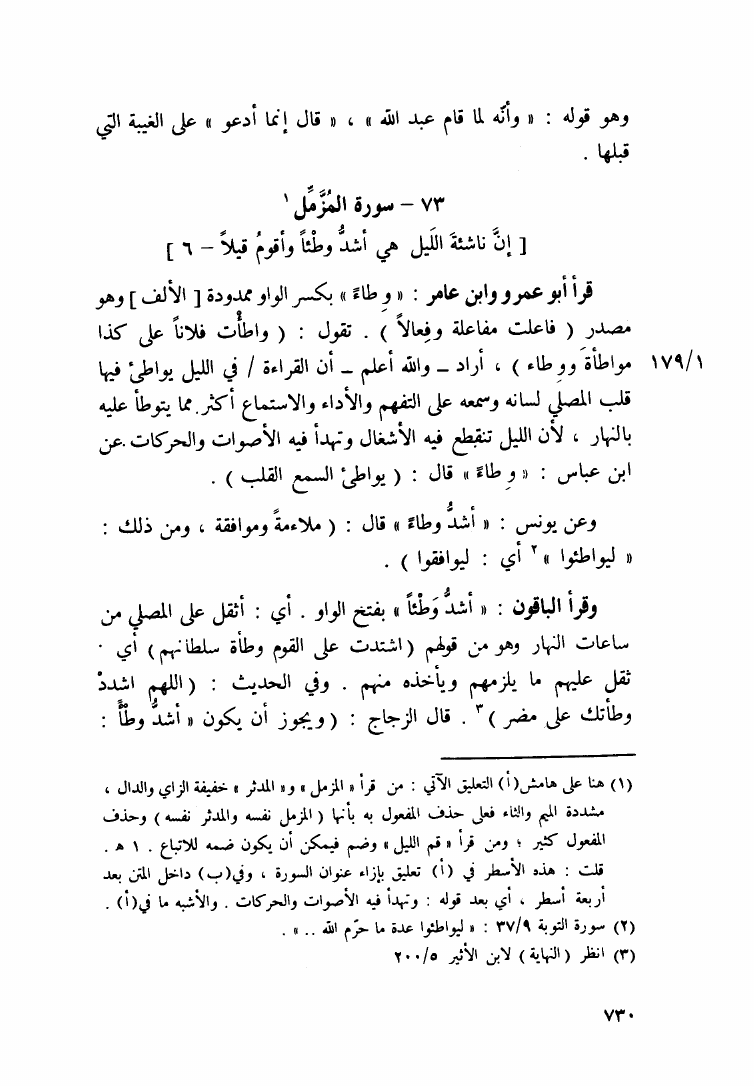 وهو قوله : « وأنّه لما قام عبد الله » ، « قال إنما أدعو » على الغيبة التي
قبلها .
٧٣ – سورة المُزَّمِّل ١
[ إنَّ ناشئةَ اللَيل هي أشدُّ وطْئاً وأقومُ قيلاً – ٦ ]
قرأ أبو عمرو وابن عامر : « وِطاءً » بكسر الواو ممدودة [ الألف ] وهو
مصدر ( فاعلت مفاعلة وفِعالاً ) . تقول : ( واطأْت فلاناً على كذا
مواطأة ووِطاء ) ، أراد – والله أعلم – أن القراءة / في الليل يواطئ فيها
١٧٩/١
قلب المصلي لسانه وسمعه على التفهم والأداء والاستماع أكثر مما يتوطأ عليه
بالنهار ، لأن الليل تنقطع فيه الأشغال وتهدأ فيه الأصوات والحركات .عن
ابن عباس : « وِطاءً » قال : ( يواطئ السمع القلب ) .
وعن يونس : « أشدُّ وطاءً » قال : ( ملاءمةً وموافقة ، ومن ذلك :
« ليواطئوا » ٢ أي : ليوافقوا ) .
وقرأ الباقون : « أشدُّ وَطْئاً » بفتح الواو . أي : أثقل على المصلي من
ساعات النهار وهو من قولهم ( اشتدت على القوم وطأة سلطانهم ) أي ·
ثقل عليهم ما يلزمهم ويأخذه منهم . وفي الحديث : ( اللهم اشددْ
وطأتك على مضر ) ٣ . قال الزجاج : ( ويجوز أن يكون « أشدُّ وطْأً :
(١) هنا على هامش (أ) التعليق الآتي : من قرأ « المزمل » و« المدثر » خفيفة الزاي والدال ،
مشددة الميم والثاء فعلى حذف المفعول به بأنها ( المزمل نفسه والمدثر نفسه ) وحذف
المفعول كثير ؛ ومن قرأ « قم الليل » وضم فيمكن أن يكون ضمه للاتباع . ١ هـ .
قلت : هذه الأسطر في (أ) تعليق بإزاء عنوان السورة ، وفي(ب) داخل المتن بعد
أربعة أسطر ، أي بعد قوله : وتهدأ فيه الأصوات والحركات . والأشبه ما في(أ) .
(٢) سورة التوبة ٣٧/٩ : « ليواطئوا عدة ما حرّم الله .. » .
(٣) انظر ( النهاية ) لابن الأثير ٢٠٠/٥
٧٣٠